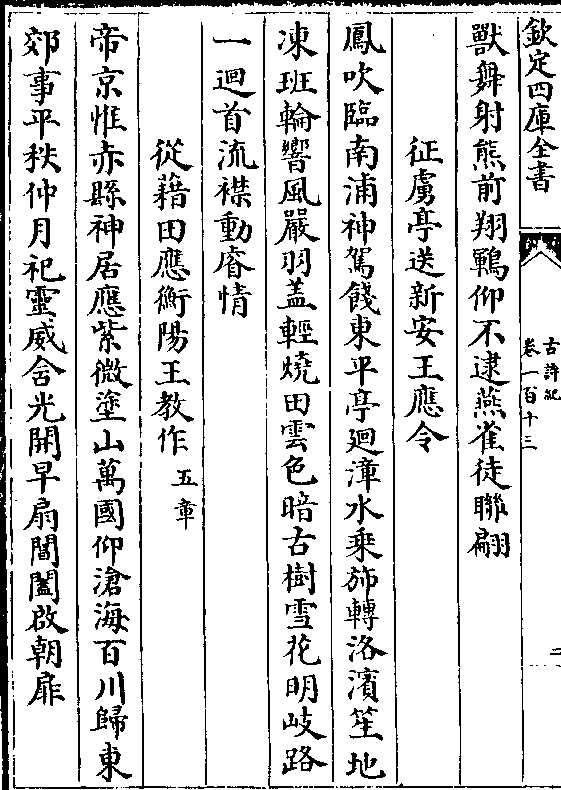 欽定四庫全書
古詩紀
卷一百十三
二
獸舞射熊前翔鶤仰不逮燕雀徒聯翩
征虜亭送新安王應令
鳳吹臨南浦神駕餞東平亭迴漳水乘斾轉洛濱笙地
凍班輪響風嚴羽盖輕燒田雲色暗古樹雪花明岐路
一迴首流襟動睿情
從藉田應衡陽王教作五章
帝京惟赤縣神居應紫微塗山萬國仰滄海百川歸東
郊事平秩仲月祀靈威含光開早扇閶闔啟朝扉